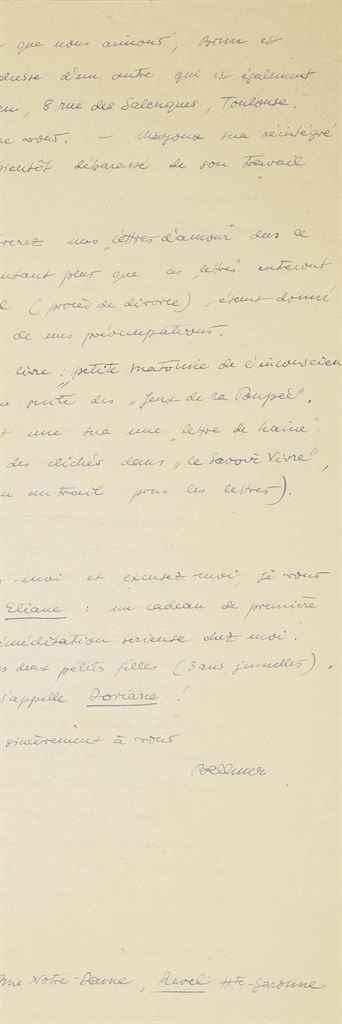 que nous aimons, Brun est
d'un autre qui est également
8 rue des Salenques, Toulouse.
vous. —
bientôt débarassé de son travail
mes „lettres d'amour" dans le
autant pour que ces „lettres" entreront
(procès de divorce), étant donné
de mes préoccupations.
livre : „petite anatomie de l'inconscien
suite des „Jeux de la Poupée".
une „lettre de haine"
des clichés dans „le Savoir Vivre",
un pour les lettres).
moi et excusez-moi, je vous
Eliane : un cadeau de première
préméditation serieuse chez moi.
deux petits filles (3 ans jumelles),
s'appelle Doriane !
sincèrement à vous
Bellmer
Notre-Dame, Revel Hte-Garonne